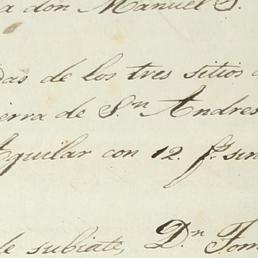 a don Manuel S.
das de los tres sitios
ierra de S.n Andres
Aguilar con 12. f.s sen
de subiate, D.n Tom